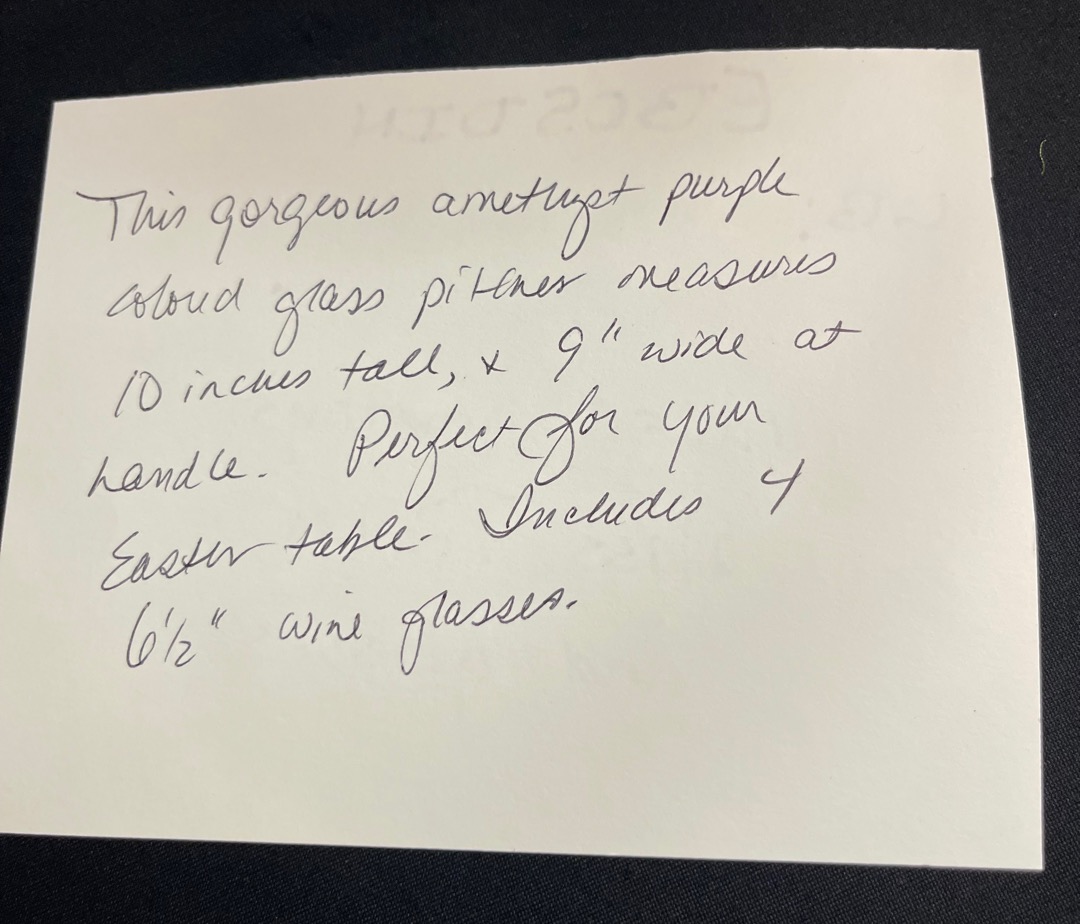 This gorgeous amethyst purple
colored glass pitcher measures
10 inches tall, x 9" wide at
handle. Perfect for your
Easter table. Includes 4
6½" wine glasses.